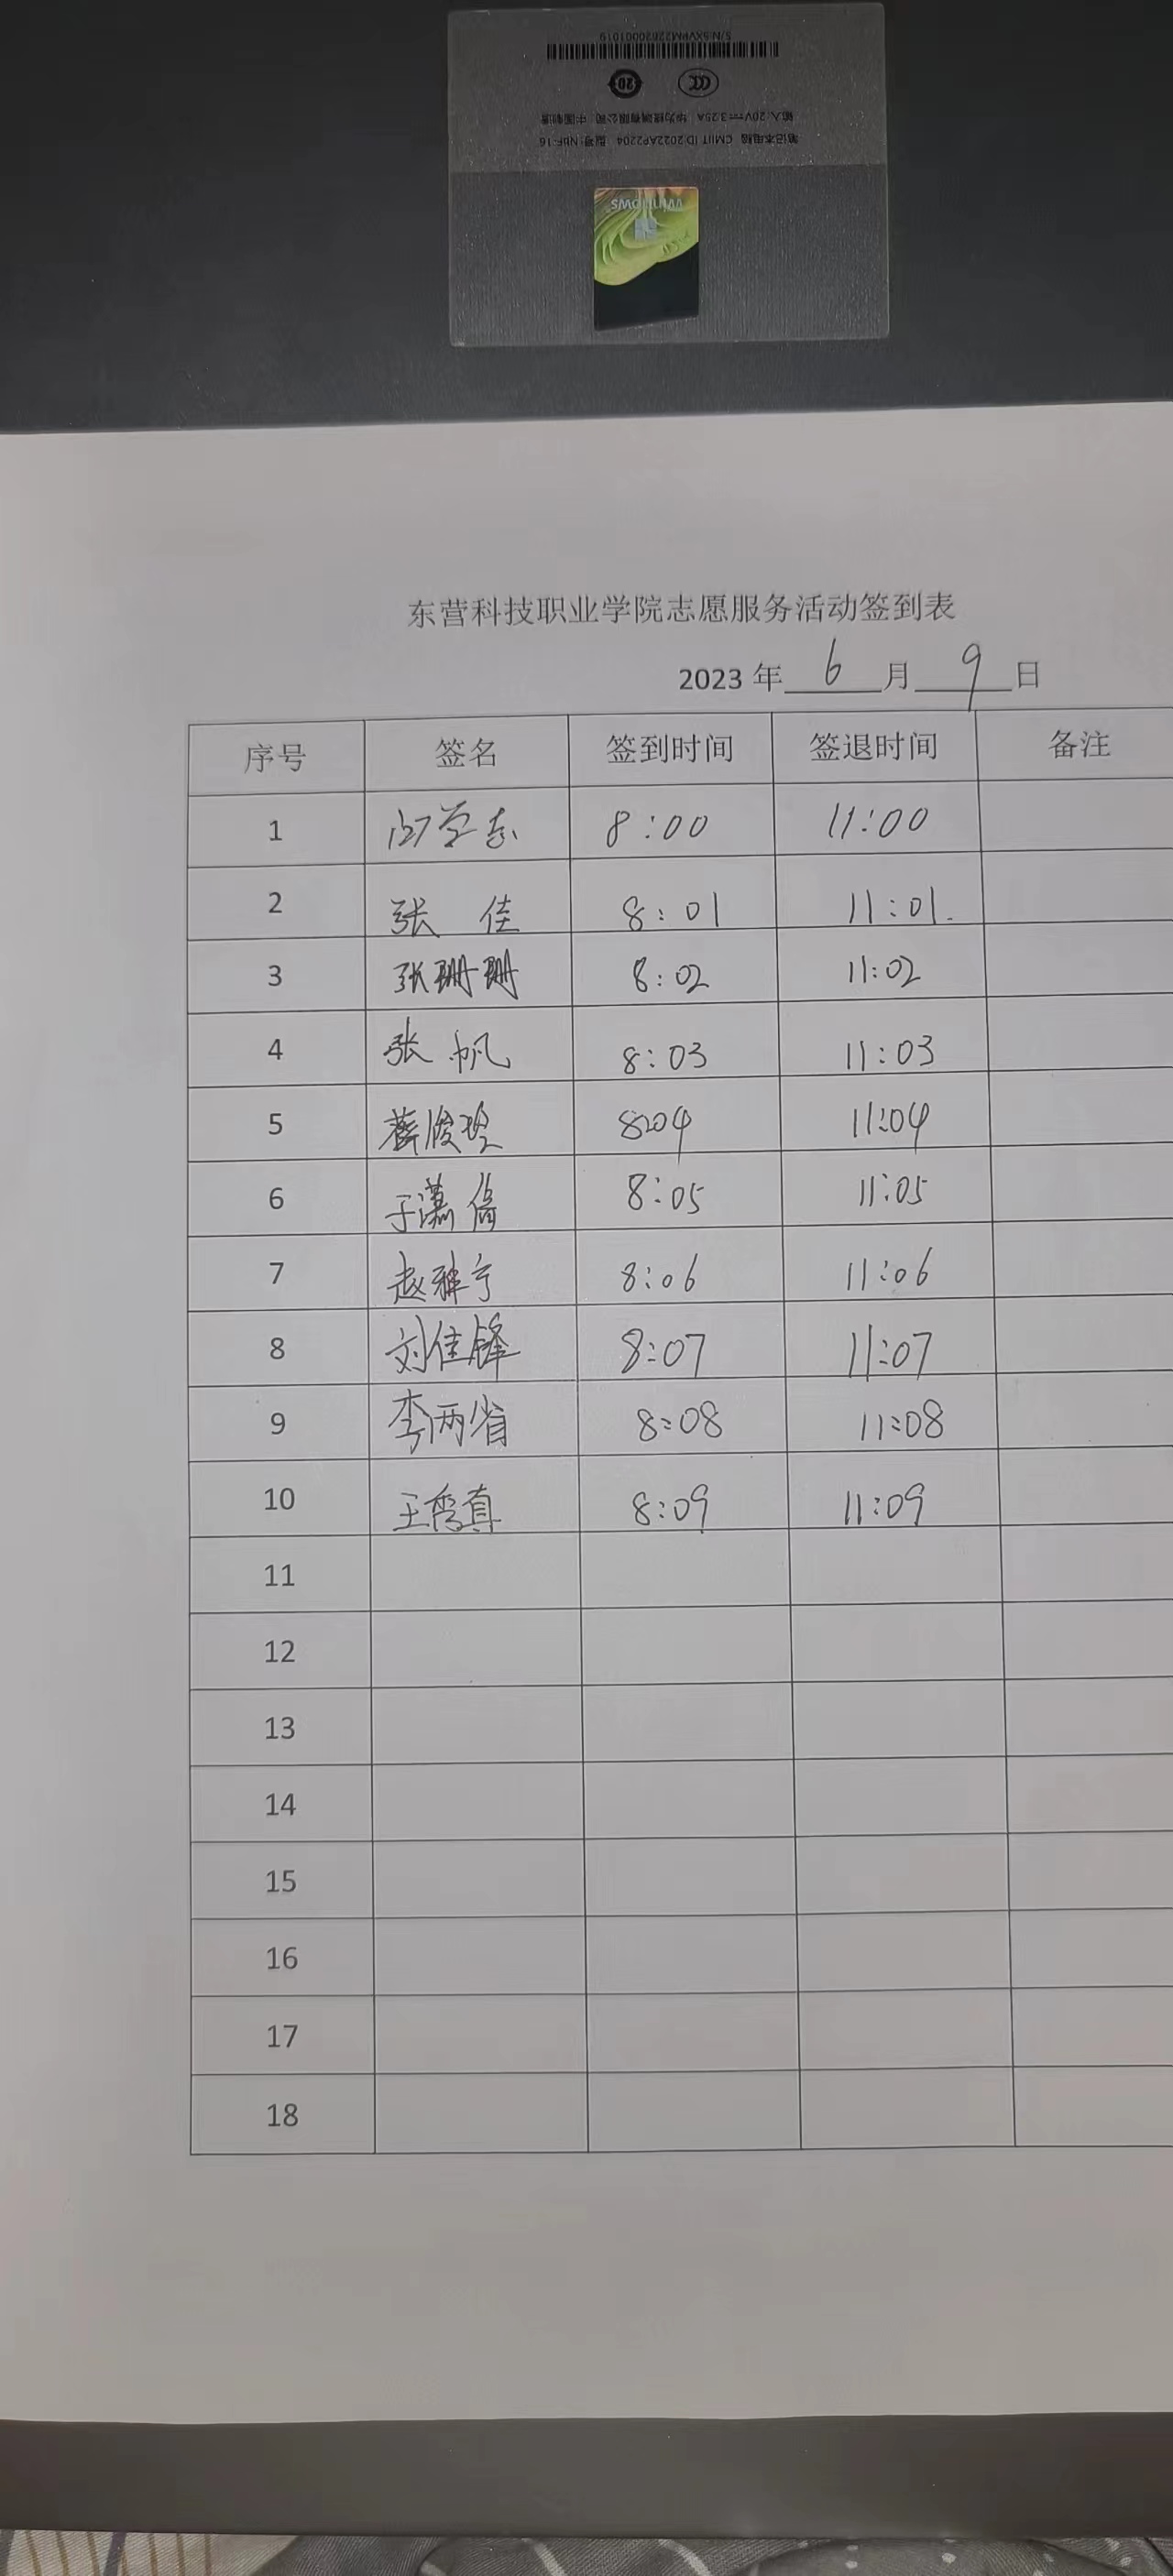 S/N:5XVPM22B20001019
20
CCC
输入:20V⎓3.25A 华为终端有限公司 中国制造
笔记本电脑 CMIIT ID:2022AP2204 型号:NbF-16
Windows
东营科技职业学院志愿服务活动签到表
2023 年 6 月 9 日
序号 签名 签到时间 签退时间 备注
1 8:00 11:00
2 张 佳 8:01 11:01.
3 张珊珊 8:02 11:02
4 张 帆 8:03 11:03
5 薛俊 8:04 11:04
6 于潇 8:05 11:05
7 赵雅宁 8:06 11:06
8 刘佳锋 8:07 11:07
9 李两省 8:08 11:08
10 王秀真 8:09 11:09
11
12
13
14
15
16
17
18